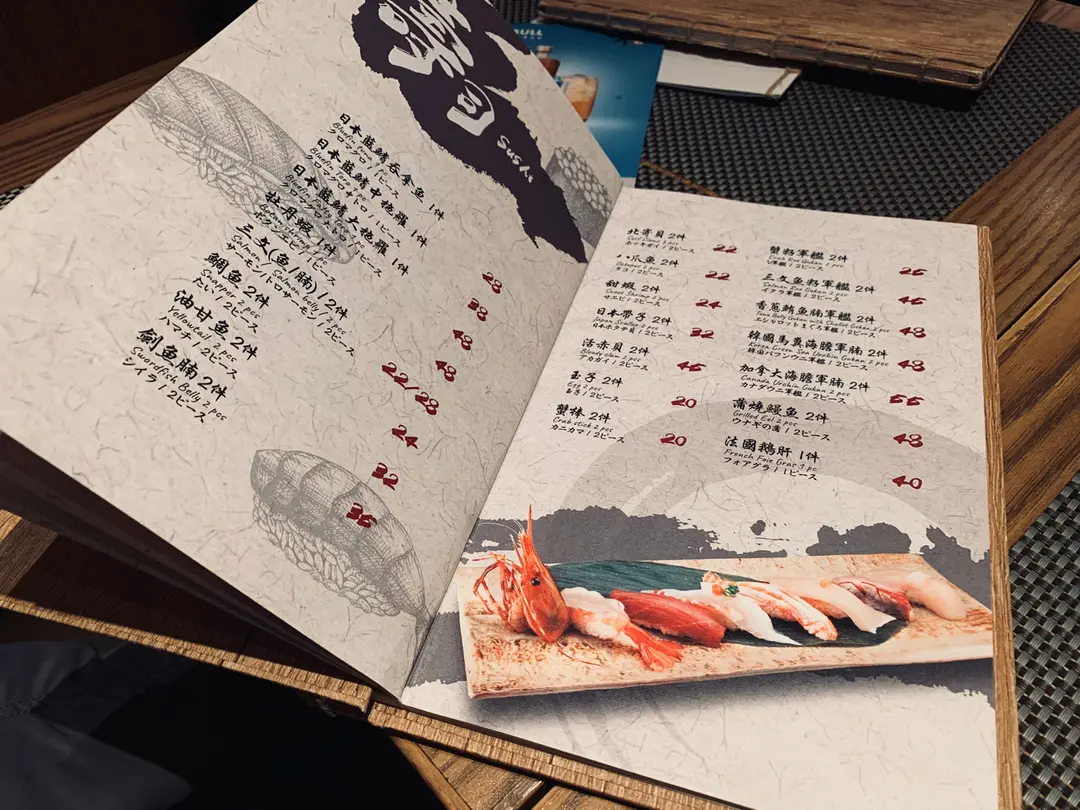 壽司
Sushi
日本藍鰭吞拿魚 1件
Bluefin Tuna 1 pc
クロマグロ / 1ピース
日本藍鰭中拖羅 1件
38
日本藍鰭大拖羅 1件
48
牡丹蝦 1件
Botan Shrimp 1 pc
ボタンエビ / 1ピース
48
三文(魚/腩) / 2件
Salmon / Salmon belly / 2 pcs
サーモン / トロサーモン / 2ピース
22/28
鯛魚 2件
Snapper 2 pcs
たい / 2ピース
24
油甘魚 2件
Yellowtail 2 pcs
ハマチ / 2ピース
32
劍魚腩 2件
Swordfish Belly 2 pcs
シイラ / 2ピース
36
北寄貝 2件
Surf Clams 2 pcs
ホッキガイ / 2ピース
22
八爪魚 2件
Octopus 2 pcs
タコ / 2ピース
22
甜蝦 2件
Sweet Shrimp 2 pcs
甘エビ / 2ピース
24
日本帶子 2件
Japan Scallop 2 pcs
日本ホタテ貝 / 2ピース
32
活赤貝 2件
Bloody clam 2 pcs
アカガイ / 2ピース
46
玉子 2件
Egg 2 pcs
玉子 / 2ピース
20
蟹棒 2件
Crab stick 2 pcs
カニカマ / 2ピース
20
蟹籽軍艦 2件
Crab Roe Gukan 2 pcs
26
三文魚籽軍艦 2件
Salmon Roe Gukan 2 pcs
イクラ軍艦 / 2ピース
46
香蔥鮪魚腩軍艦 2件
Tuna Belly Gukan with Shallot Gukan 2 pcs
エシャロットまぐろ軍艦 / 2ピース
48
韓國馬糞海膽軍腩 2件
Korea Green Sea Urchin Gukan 2 pcs
韓国バフンウニ軍艦 / 2ピース
48
加拿大海膽軍腩 2件
Canada Urchin Gukan 2 pcs
カナダウニ軍艦 / 2ピース
66
蒲燒鰻魚 2件
Grilled Eel 2 pcs
ウナギの蒲 / 2ピース
48
法國鵝肝 1件
French Foie Gras 1 pc
フォアグラ / 1ピース
40